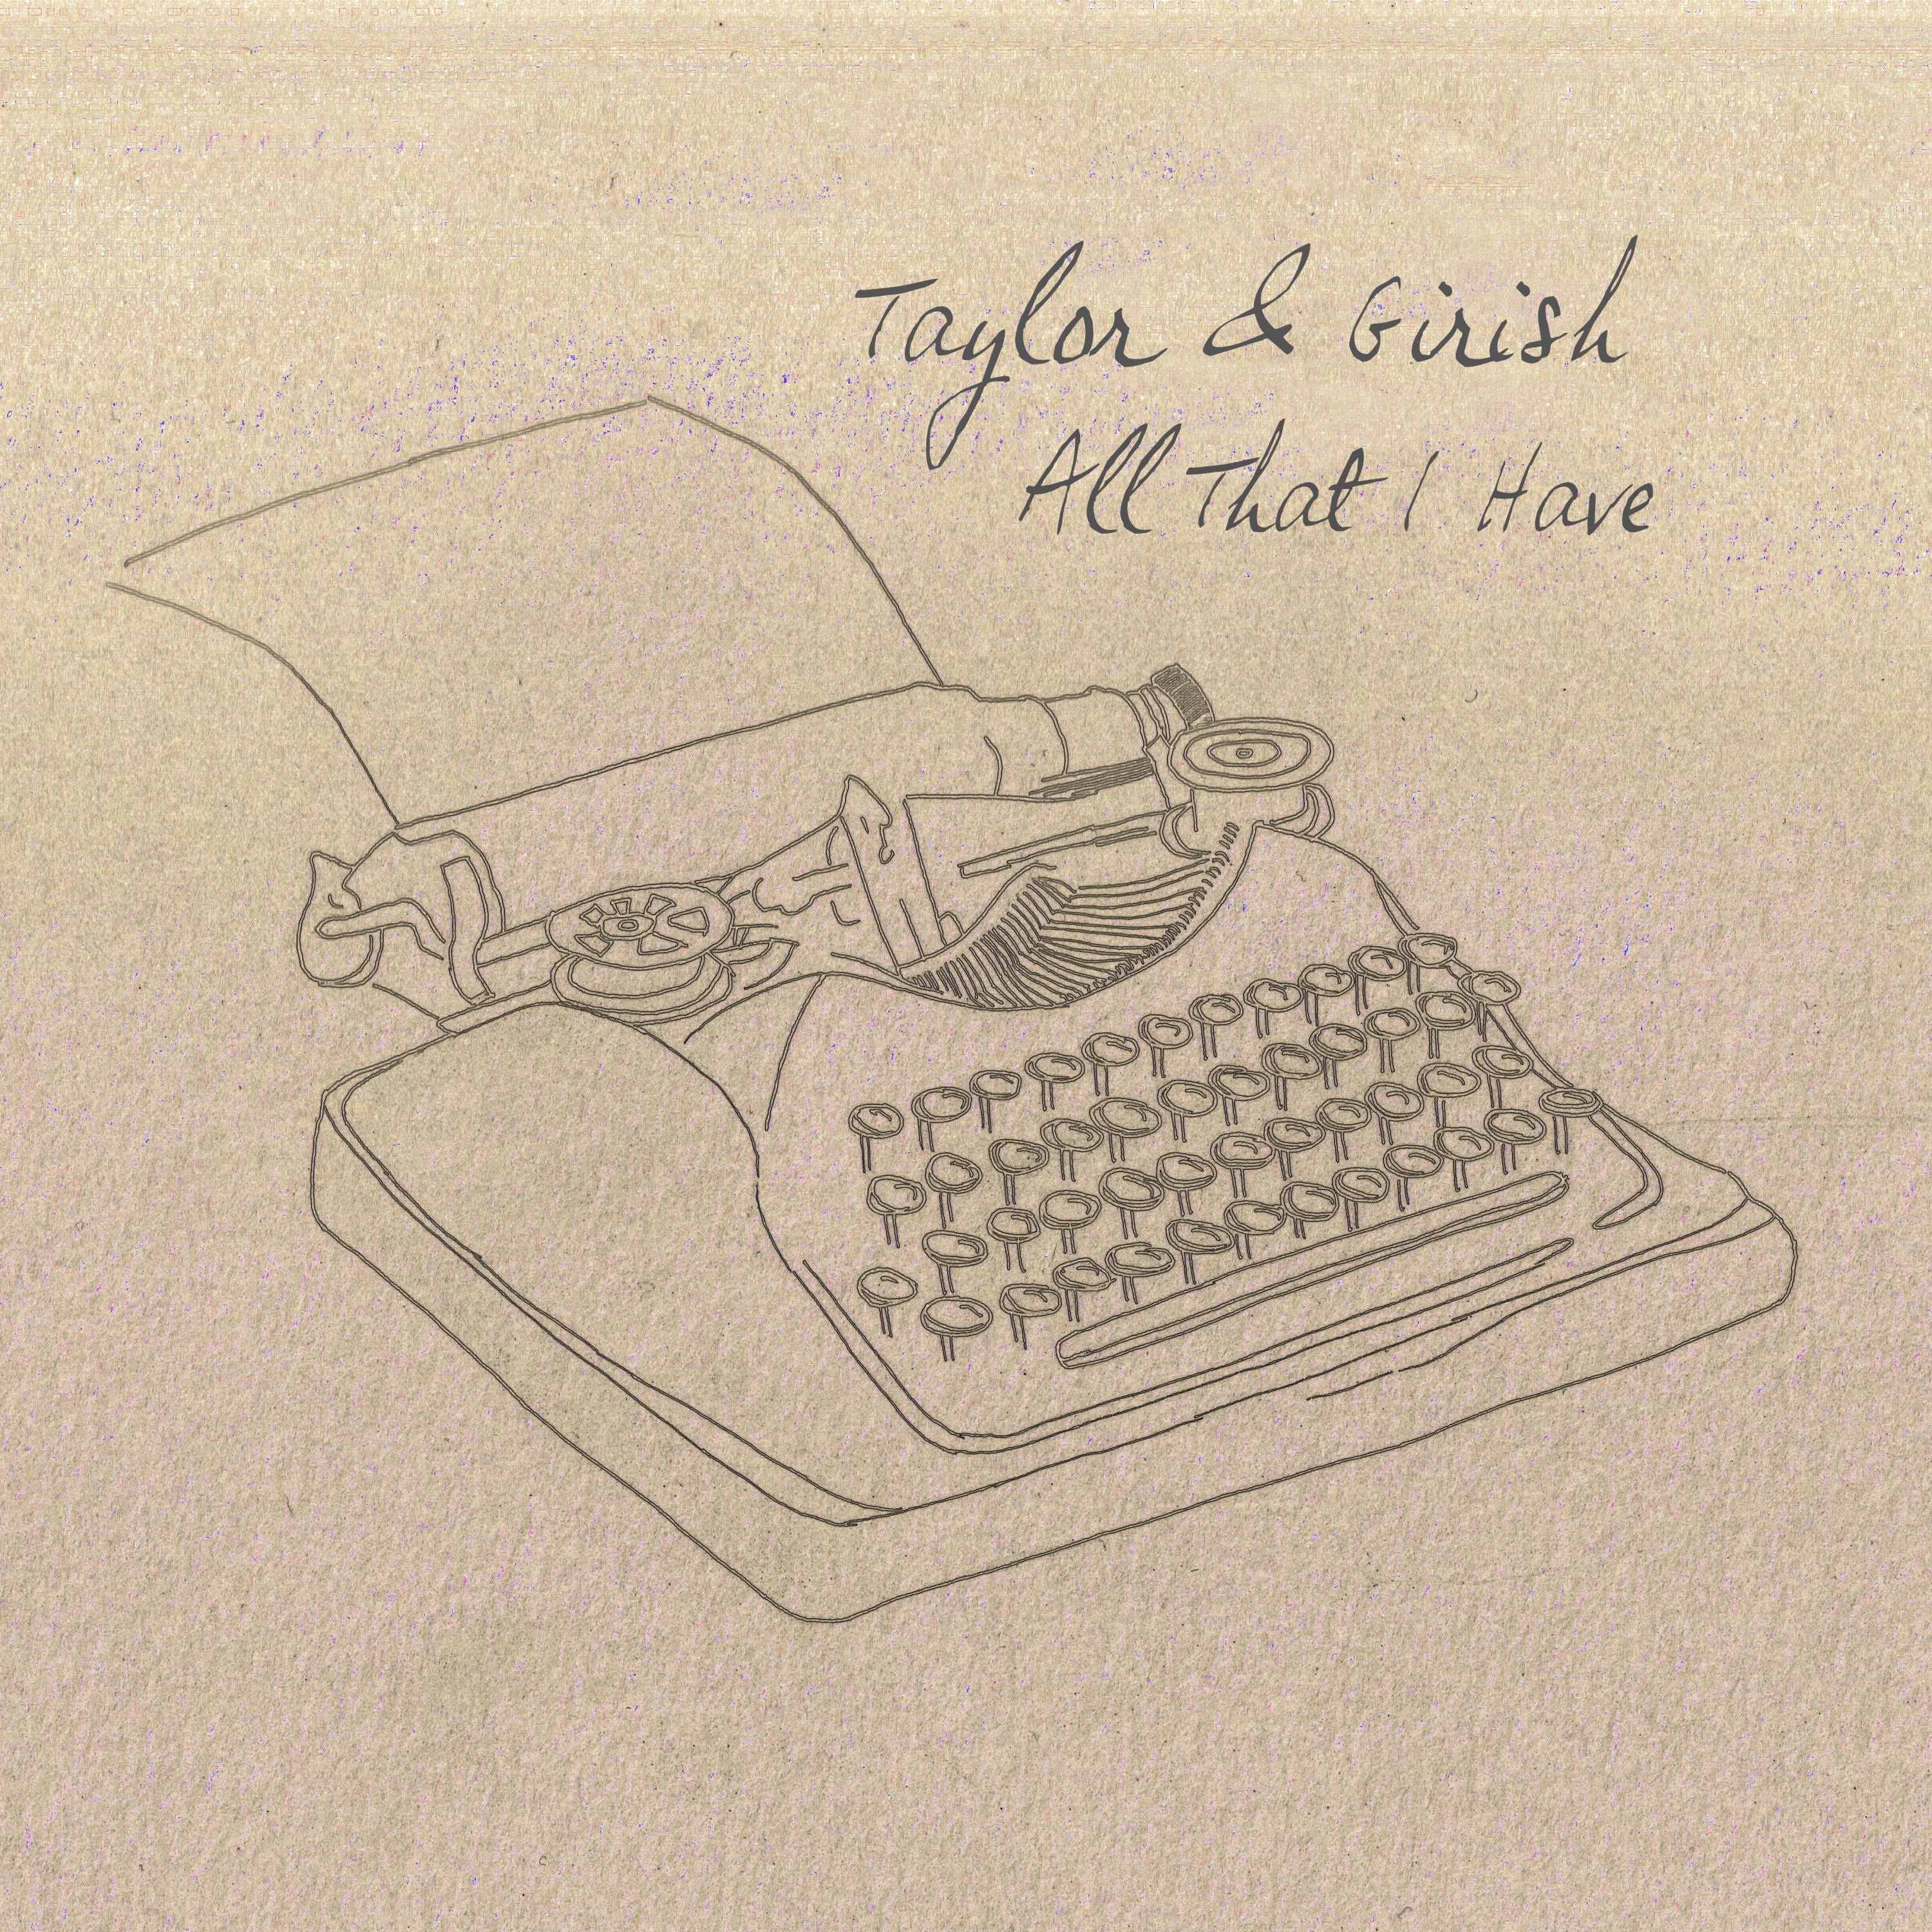 Taylor & Girish
All That I Have